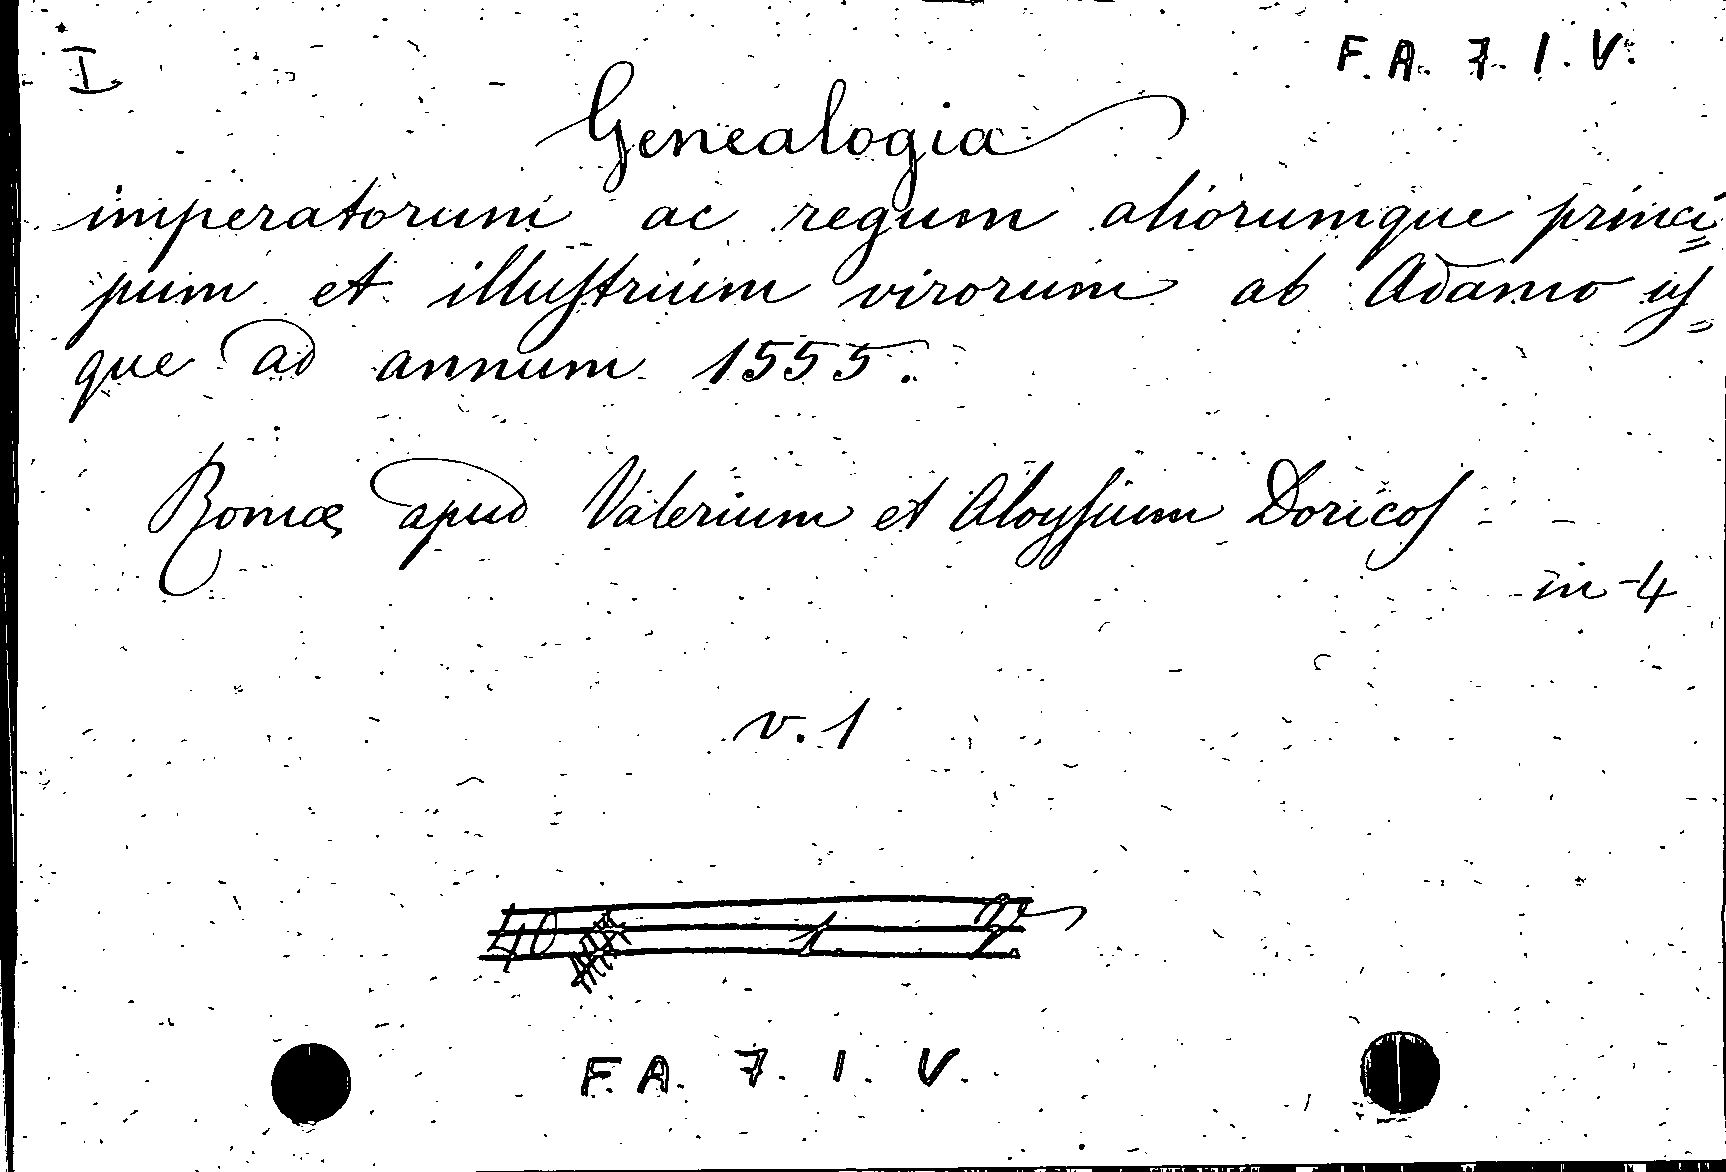 I
F. A. 7. I. V.
Genealogia
imperatorum ac regum aliorumque princi=
pum et illustrium virorum ab Adamo us=
que ad annum 1555.
Romæ apud Valerium et Aloysium Doricos
in-4
v. 1
F. A. 7. I. V.